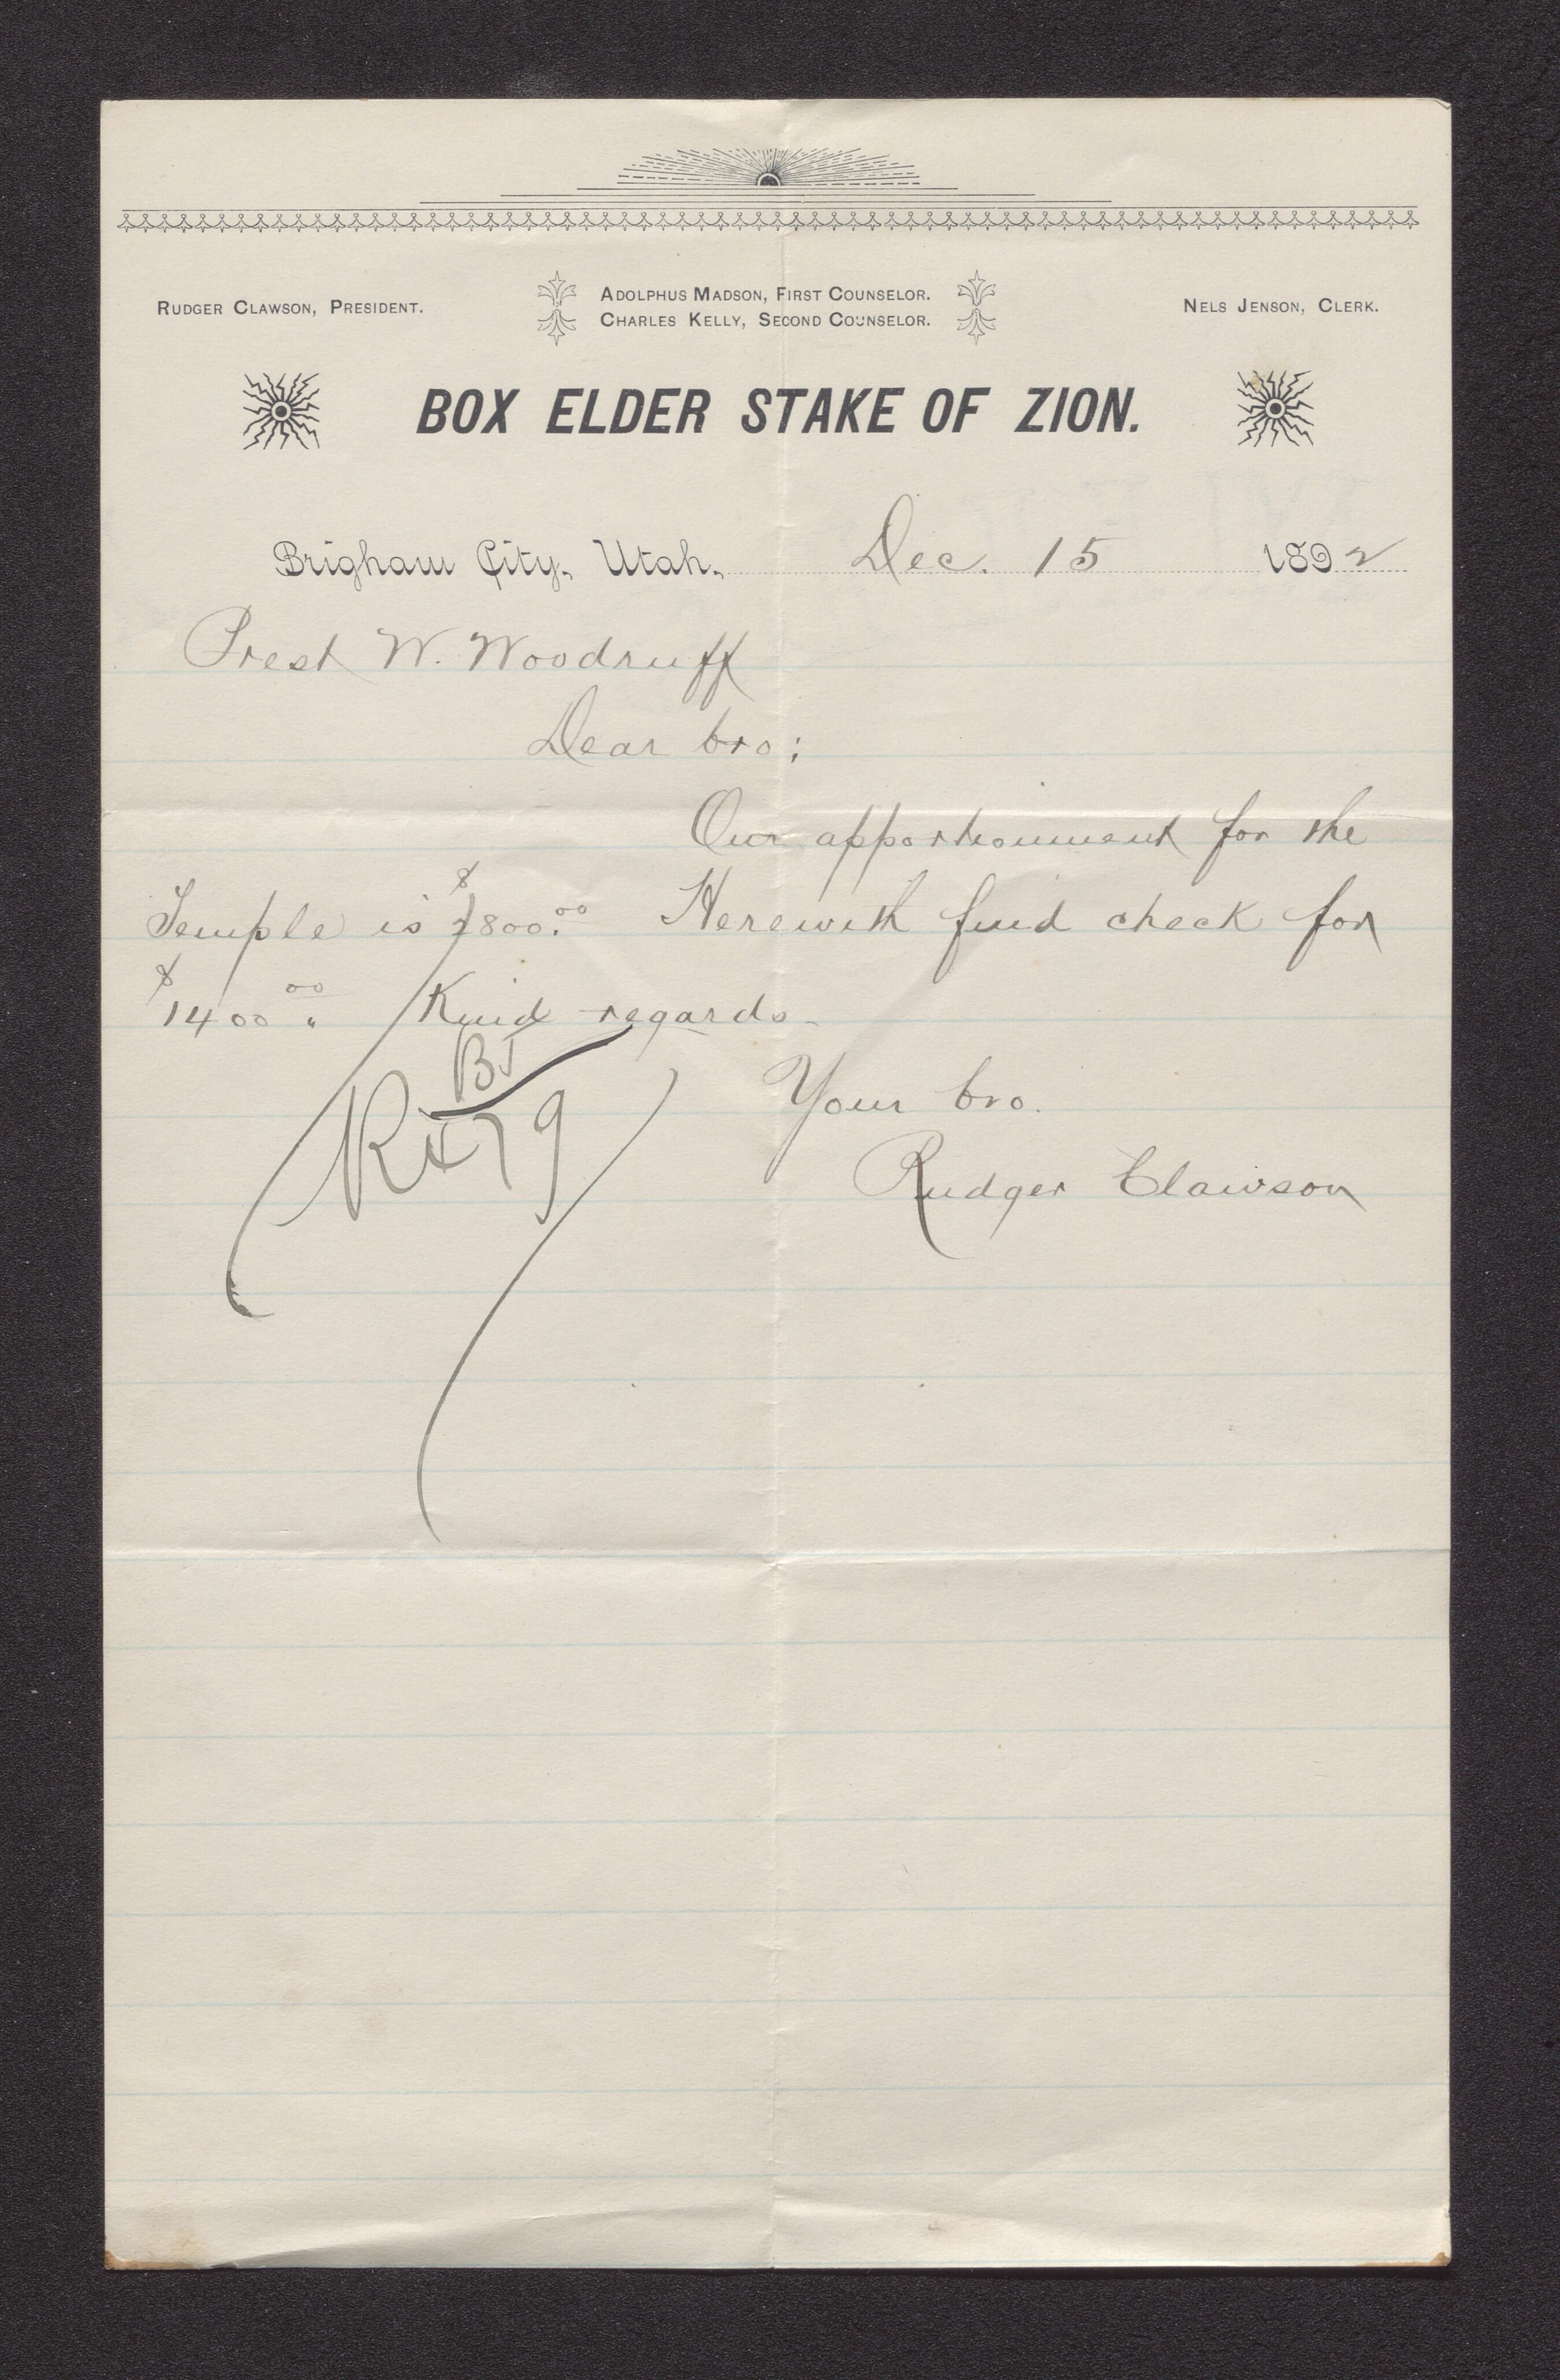 RUDGER CLAWSON, PRESIDENT.
ADOLPHUS MADSON, FIRST COUNSELOR.
CHARLES KELLY, SECOND COUNSELOR.
NELS JENSON, CLERK.
BOX ELDER STAKE OF ZION.
Brigham City, Utah, Dec. 15 1892
Prest W. Woodruff
Dear bro;
Our apportionment for the
Temple is $2800.00 Herewith find check for
$1400.00 Kind regards
Your bro.
Rudger Clawson